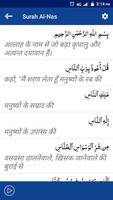 3:14
Surah Al-Nas
بِسْمِ اللَّهِ الرَّحْمَٰنِ الرَّحِيمِ
अल्लाह के नाम से जो बड़ा कृपालु और
अत्यन्त दयावान हैं।
قُلْ أَعُوذُ بِرَبِّ النَّاسِ
कहो, "मैं शरण लेता हूँ मनुष्यों के रब की
مَلِكِ النَّاسِ
मनुष्यों के सम्राट की
إِلَٰهِ النَّاسِ
मनुष्यों के उपास्य की
مِنْ شَرِّ الْوَسْوَاسِ الْخَنَّاسِ
वसवसा डालनेवाले, खिसक जानेवाले
की बुराई से